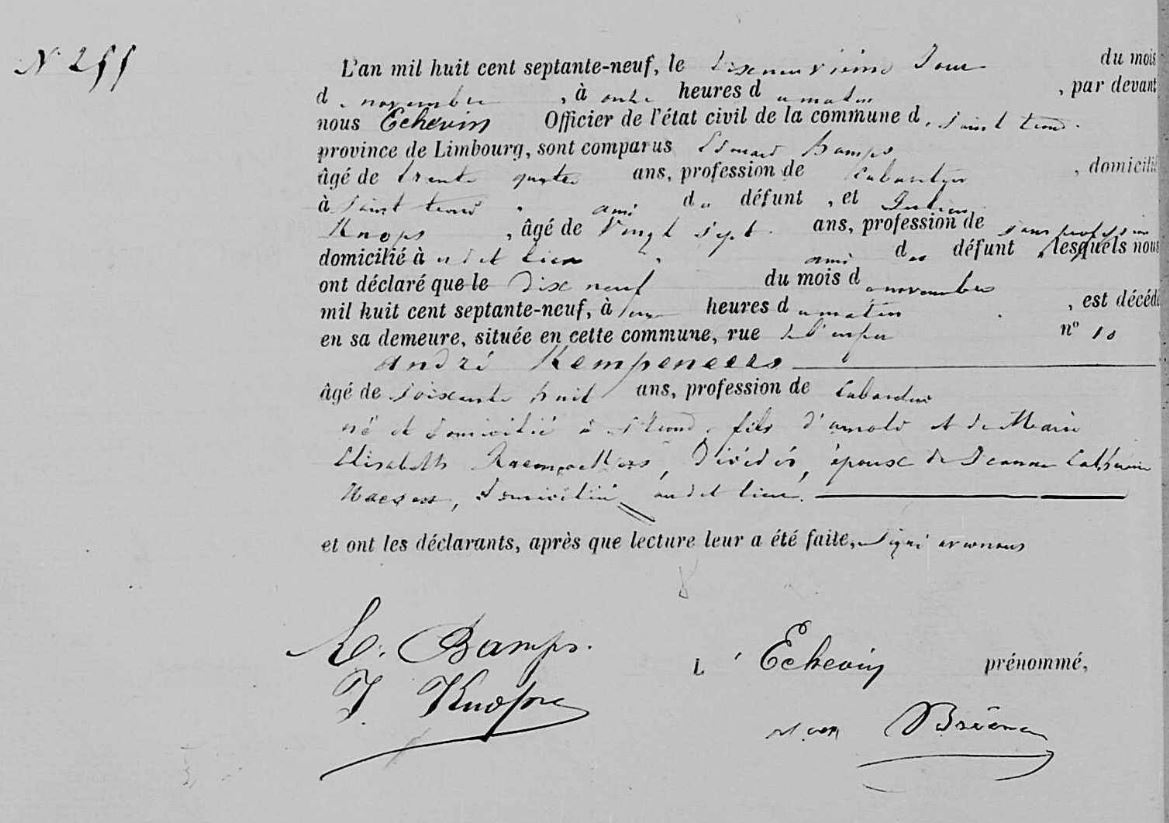 N 255
L'an mil huit cent septante-neuf, le dixneuvième Jour du mois
de novembre, à onze heures du matin, par devant
nous Echevin Officier de l'état civil de la commune de Saint trond.
province de Limbourg, sont comparus Edouard Bamps
âgé de trente quatre ans, profession de cabaretier, domicilié
à Saint trond, ami du défunt, et Julien
Knops, âgé de vingt sept ans, profession de sans profession
domicilié à udit lieu, ami du défunt, lesquels nous
ont déclaré que le dix neuf du mois de novembre
mil huit cent septante-neuf, à heures du matin, est décédé
en sa demeure, située en cette commune, rue de n° 10
André Kempeneers
âgé de soixante huit ans, profession de
né et domicilié à St trond, fils d'arnold et de Marie
Elisabeth, décédés, époux de Jeanne Catherine
domiciliée audit lieu.
et ont les déclarants, après que lecture leur a été faite, signé avec nous
E. Bamps.
J. Knops
L'Echevin prénommé,